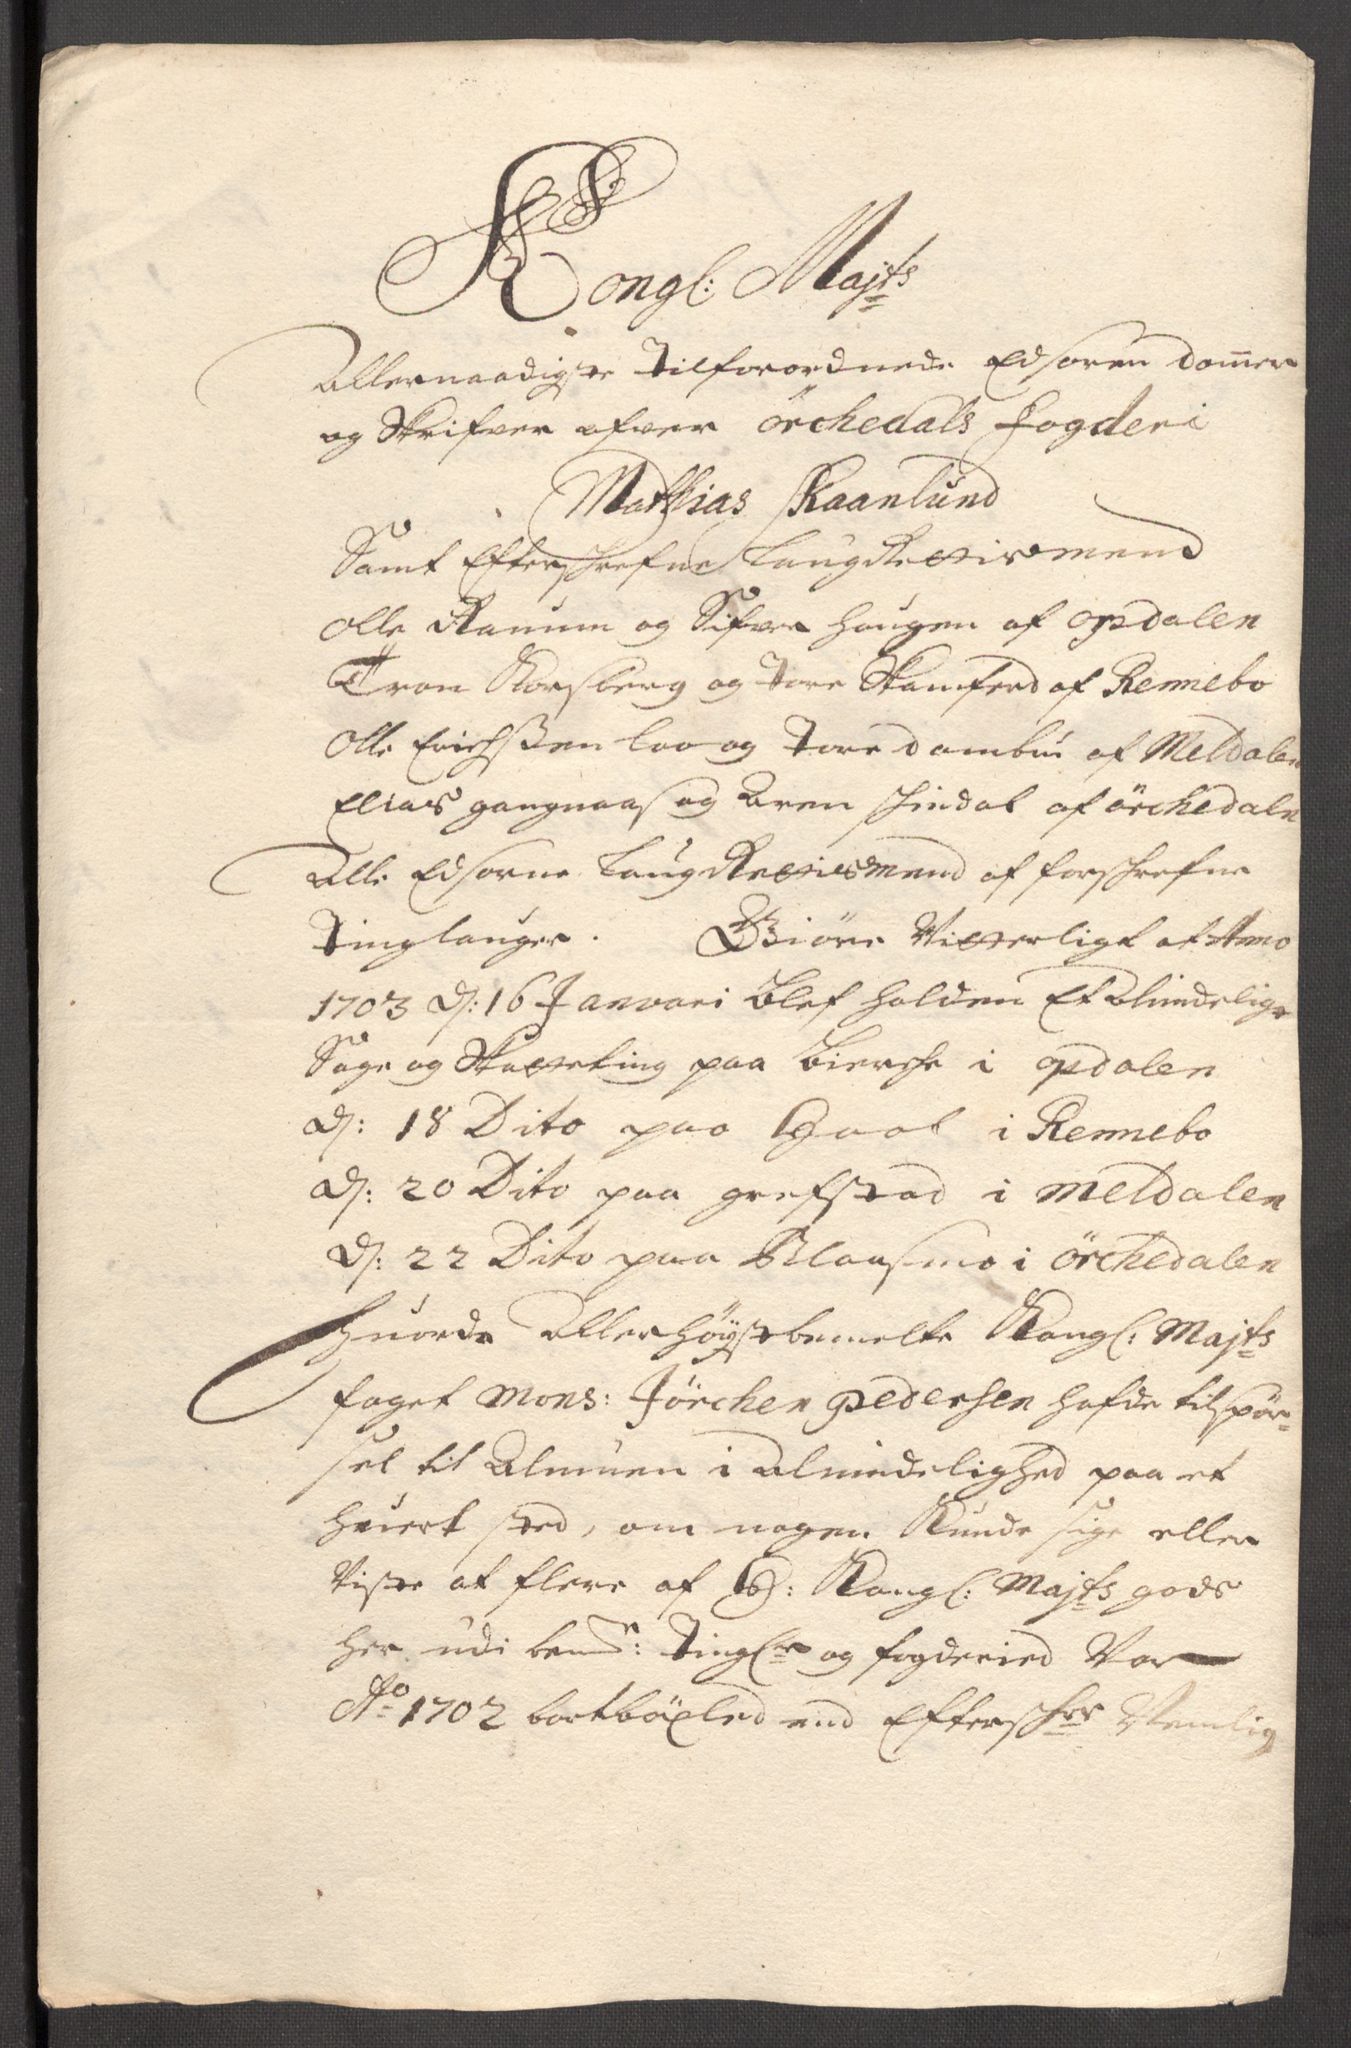 Kongl: Majts
Allernaadigste Tilforordnede Edsoren dommer
og Skrifver ofver örchedals fogderi
Mathias Skaanlund
Samt Efterschrefne LaugRettismend
Olle Raunm og Sifver haugen af opdalen
Tron Korsberg og Tore Skamferd af Rennebo
Olle Erichssen loo og Tore dambu af Meldalen
Elias gangnaas og Aren schindal af örchedaln
Alle Edsorne LaugRettismend af forschrefne
Tinglauger. Giöre Vitterligt at Anno
1703 d: 16 Januari blef holden Et Almindelige
Sage og Skatteting paa bierche i opdalen
d: 18 Dito paa Gaal i Rennebo
d: 20 Dito paa grefstad i meldalen
d: 22 Dito paa Blaasmo i örchedalen
huorda Allerhöystbemelte Kongl: Majts
foget Mons: Jörchen pedersen hafde tilspör-
sel til Almuen i Almindelighed paa et
huert sted, om nogen Kunde sige eller
Viste at flere af h: Kongl: Majts gods
her udi bemte: Tinglr og fogderied Var
Ao 1702 bortböxled end Efterschr Nemlig